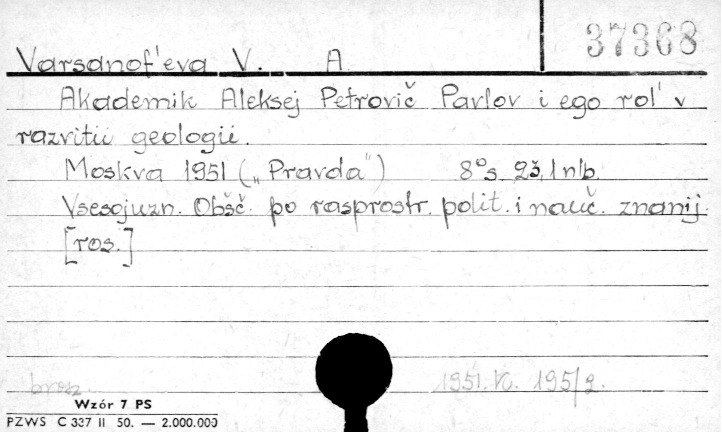 37368
Varsanof'eva V. A
Akademik Aleksej Petrovič Pavlov i ego rol' v
razvitii geologii.
Moskva 1951 („Pravda") 8° s. 23, 1 nlb.
Vsesojuzn. Obšč. po rasprostr. polit. i nauč. znanij.
[ros.]
brosz. 1951.VI. 195/2.
Wzór 7 PS
PZWS C 327 II 50. — 2.000.000